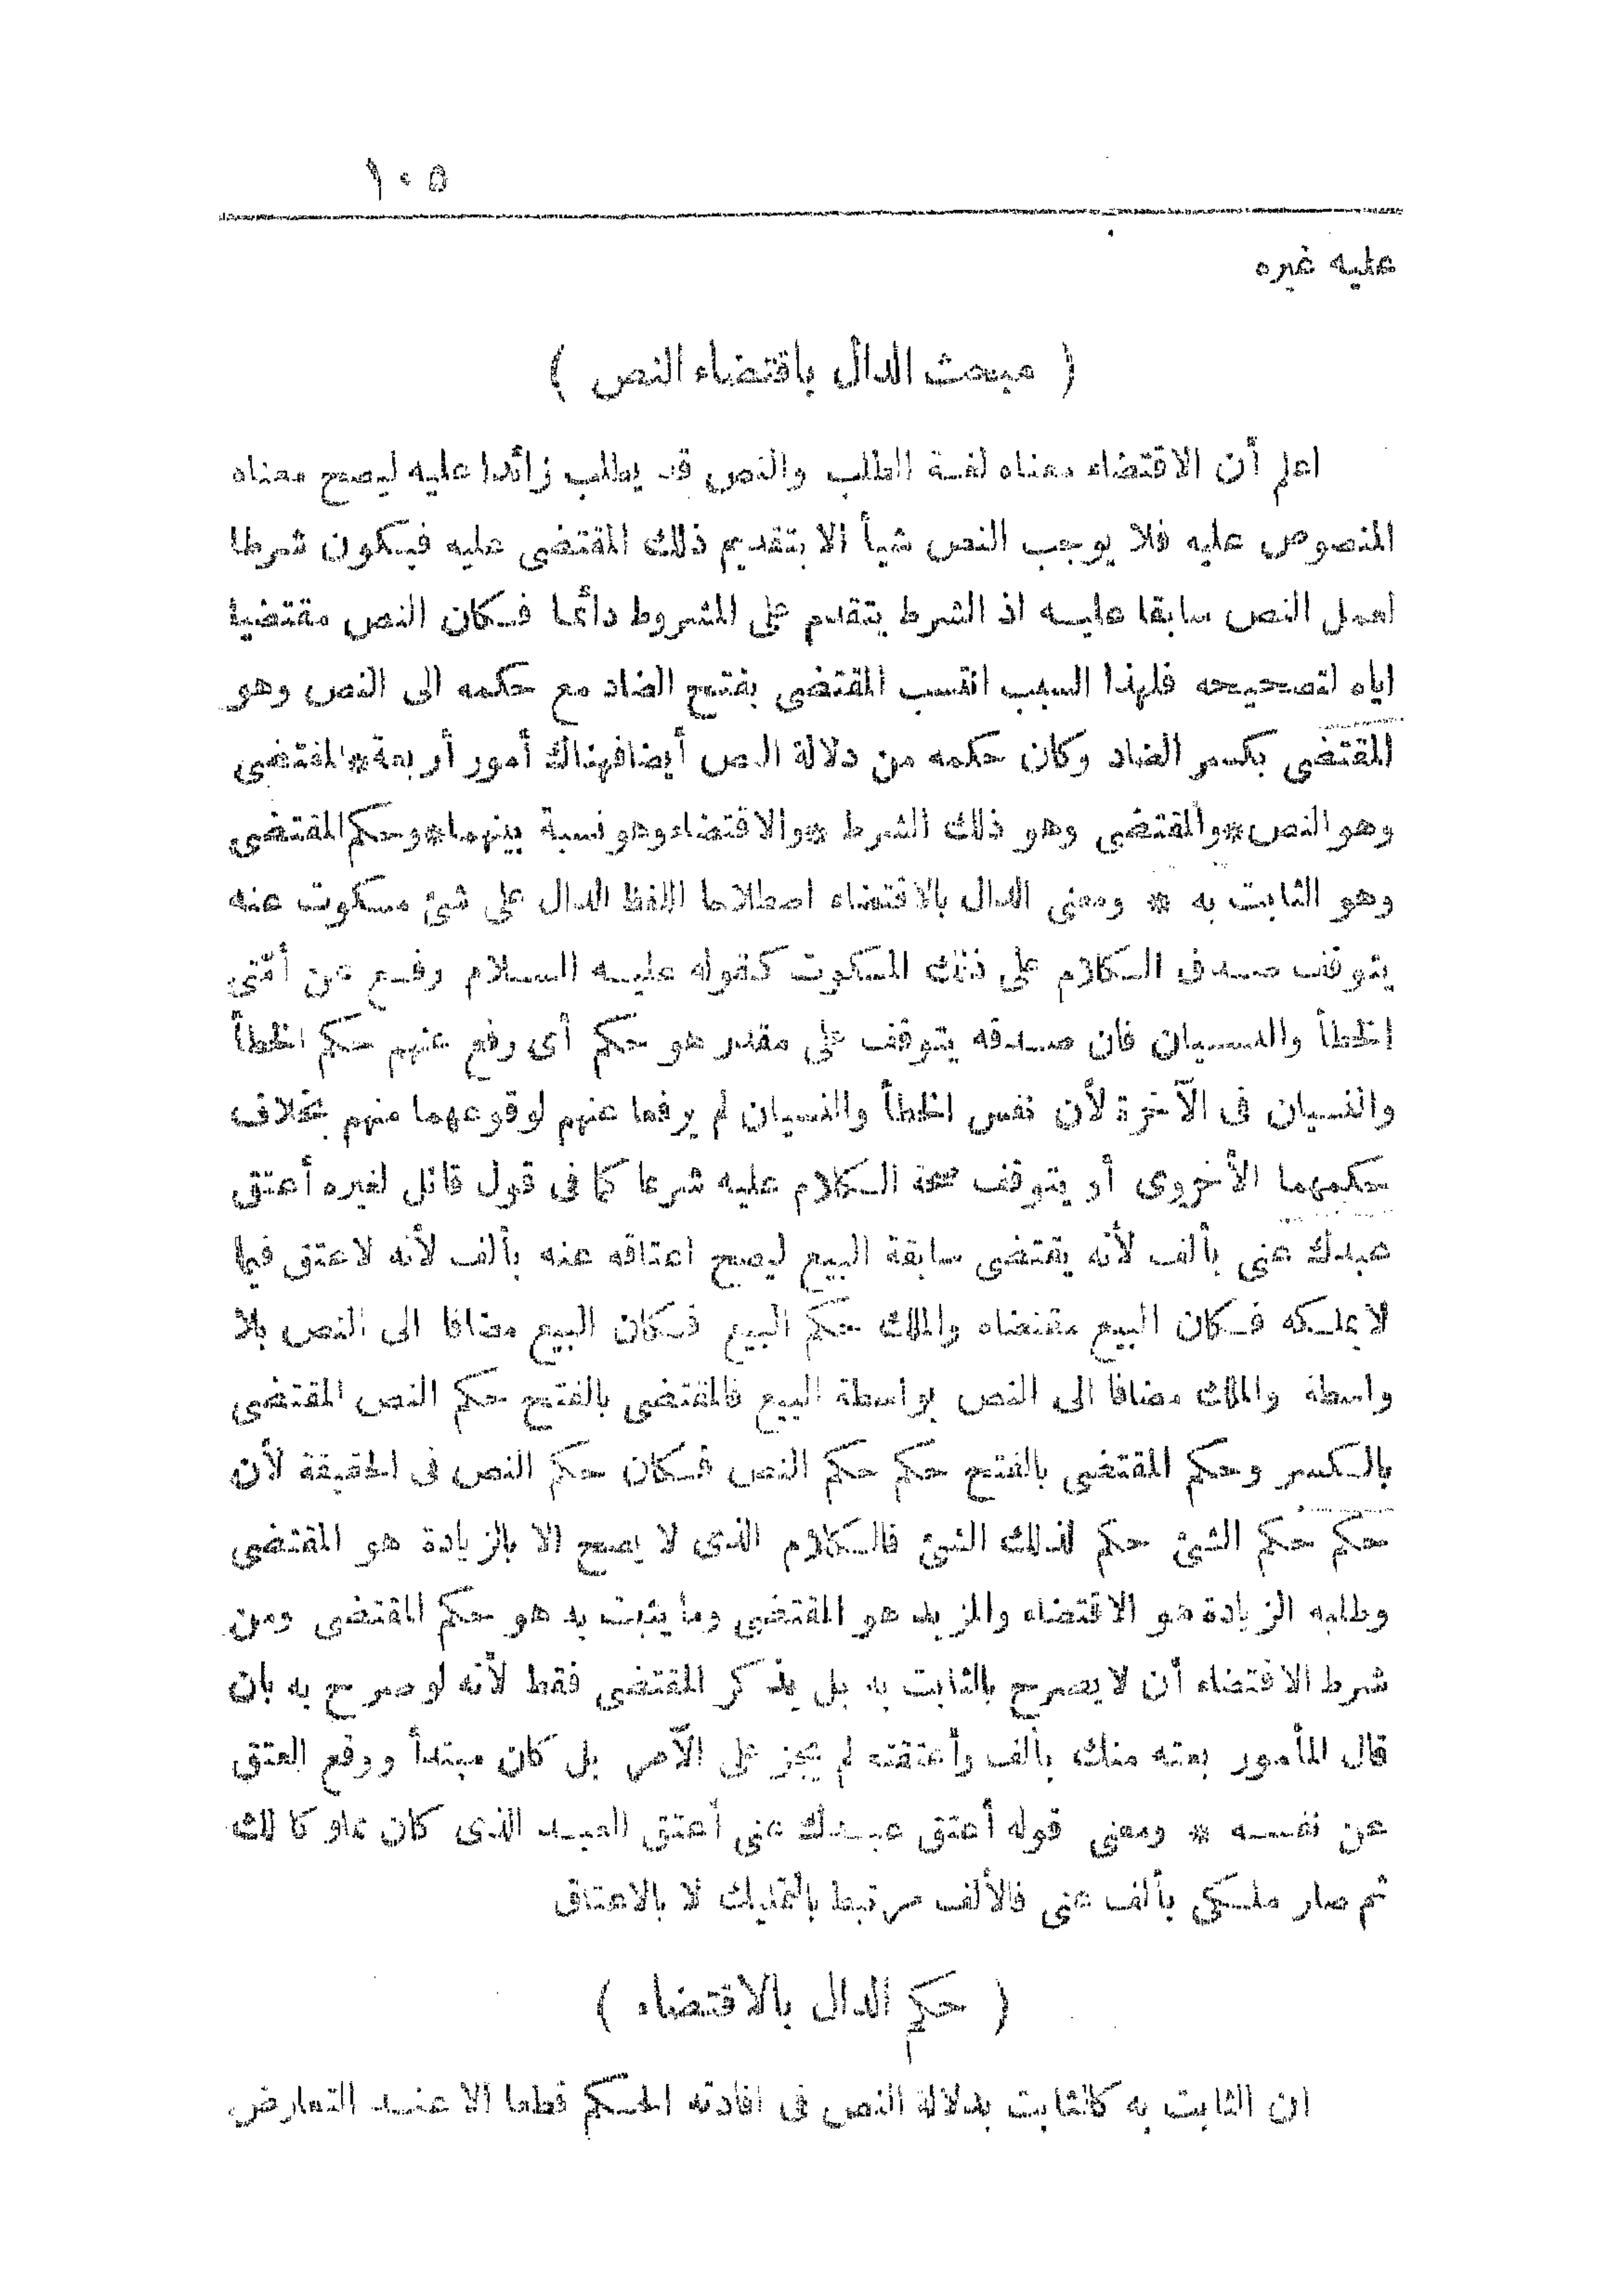 ١٠٥
عليه غيره
( مبحث الدال باقتضاء النص )
اعلم أن الاقتضاء معناه لغة الطلب والنص قد يطلب زائدا عليه ليصح معناه
المنصوص عليه فلا يوجب النص شيأ الا بتقديم ذلك المقتضى عليه فيكون شرطا
لعمل النص سابقا عليه اذ الشرط يتقدم على المشروط دائما فكان النص مقتضيا
اياه لتصحيحه فلهذا السبب انتسب المقتضى بفتح الضاد مع حكمه الى النص وهو
المقتضى بكسر الضاد وكان حكمه من دلالة النص أيضا فهناك أمور أربعة * المقتضى
وهو النص * والمقتضى وهو ذلك الشرط * والاقتضاء وهو نسبة بينهما * وحكم المقتضى
وهو الثابت به * ومعنى الدال بالاقتضاء اصطلاحا اللفظ الدال على شئ مسكوت عنه
يتوقف صدق الكلام على ذلك المسكوت كقوله عليه السلام رفع عن أمتى
الخطأ والنسيان فان صدقه يتوقف على مقدر هو حكم أى رفع عنهم حكم الخطأ
والنسيان فى الآخرة لأن نفس الخطأ والنسيان لم يرفعا عنهم لوقوعهما منهم بخلاف
حكمهما الأخروى أو يتوقف صحة الكلام عليه شرعا كما فى قول قائل لغيره أعتق
عبدك عنى بألف لأنه يقتضى سابقة البيع ليصح اعتاقه عنه بألف لأنه لاعتق فيما
لا يملكه فكان البيع مقتضاه والملك حكم البيع فكان البيع مضافا الى النص بلا
واسطة والملك مضافا الى النص بواسطة البيع فالمقتضى بالفتح حكم النص المقتضى
بالكسر وحكم المقتضى بالفتح حكم حكم النص فكان حكم النص فى الحقيقة لأن
حكم حكم الشئ حكم لذلك الشئ فالكلام الذى لا يصح الا بالزيادة هو المقتضى
وطلبه الزيادة هو الاقتضاء والمزيد هو المقتضى وما يثبت به هو حكم المقتضى ومن
شرط الاقتضاء أن لا يصرح بالثابت به بل يذكر المقتضى فقط لأنه لو صرح به بان
قال المأمور بعته منك بألف وأعتقته لم يجز على الآمر بل كان مبتدأ ووقع العتق
عن نفسه * ومعنى قوله أعتق عبدك عنى أعتق العبد الذى كان مملوكا لك
ثم صار ملكى بألف عنى فالألف مرتبط بالتمليك لا بالاعتاق
( حكم الدال بالاقتضاء )
ان الثابت به كالثابت بدلالة النص فى افادته الحكم قطعا الا عند التعارض